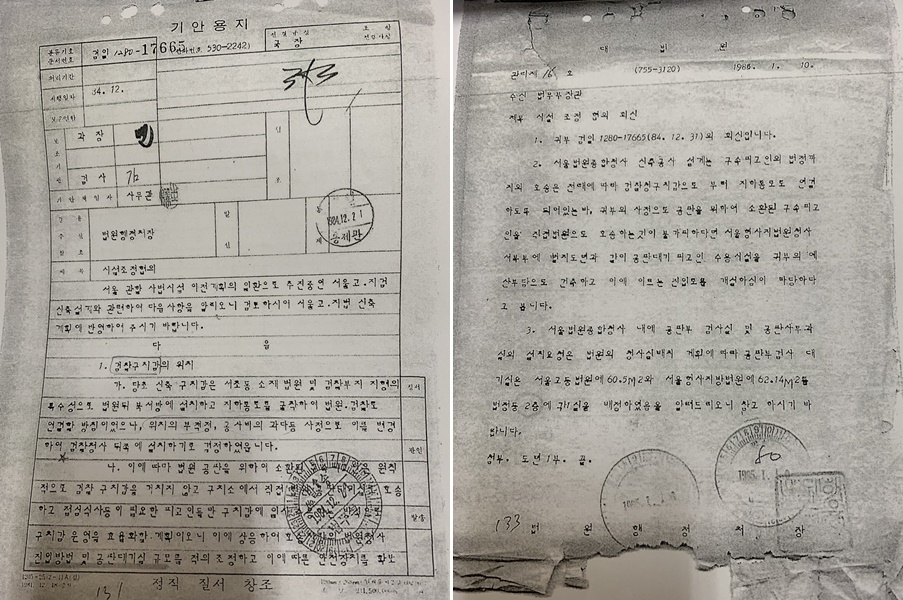 기안용지
분류기호
문서번호
검일 1280-17665
530-2242)
전결방침
국장
처리기간
시행일자
84. 12.
보존연한
과장
검사
기안책임자 사무관
법원행정처장
1984.12.21
통제관
제목 시설조정협의
서울 관할 사법시설 이전계획의 일환으로 추진중인 서울고.지검
신축설계와 관련하여 다음사항을 알려오니 검토하시어 서울고.지법 신축
계획에 반영하여 주시기 바랍니다.
다 음
1. 검찰구치감의 위치
가. 당초 신축 구치감은 서초동 소재 법원 및 검찰부지 지형의
특수성으로 법원뒤 북서방에 설치하고 지하통로를 굴착하여 법원.검찰로
연결할 방침이었으나, 위치의 부적정, 공사비의 과다등 사정으로 이를 변경
하여 검찰청사 뒤쪽에 설치하기로 결정하였읍니다.
나. 이에 따라 법원 공판을 위하여 소환된 원칙
적으로 검찰 구치감을 거치지 않고 구치소에서 직접 호송
하고 점심식사등이 필요한 피고인들만 구치감에
구치감 운영을 효율화할 계획이오니 이에 상응하여
진입방법 및 공판대기실 규모를 적의 조정하고 이에 따른 안전장치를 확보
정서
관인
발송
정직 질서 창조
131
대 법 원
관이제 16 호 (755-3120) 1985. 1. 10.
수신 법무부장관
제목 시설 조정 협의 회신
1. 귀부 검일 1280-17665(84. 12. 31)의 회신입니다.
2. 서울법원종합청사 신축공사 설계는 구속피고인의 법정까
지의 호송은 전례에 따라 검찰청구치감으로 부터 지하통로로 연결
하도록 되어있는바, 귀부의 사정으로 공판을 위하여 소환된 구속피고
인을 신법원으로 호송하는것이 불가피하다면 서울형사지방법원청사
서북부에 별치도면과 같이 공판대기 피고인 수용시설을 귀부의 예
산부담으로 건축하고 이에 이르는 진입로를 개설하심이 마땅하다
고 봅니다.
3. 서울법원종합청사 내에 공판부 검사실 및 공판사무과
실의 설치요청은 법원의 청사실배치 계획에 따라 공판부검사 대
기실은 서울고등법원에 60.5M2와 서울형사지방법원에 62.14M2를
법정동 2층에 각1실을 배정하였음을 알려드리오니 참고 하시기 바
랍니다.
첨부. 도면 1부. 끝.
133
법 원 행 정 처 장